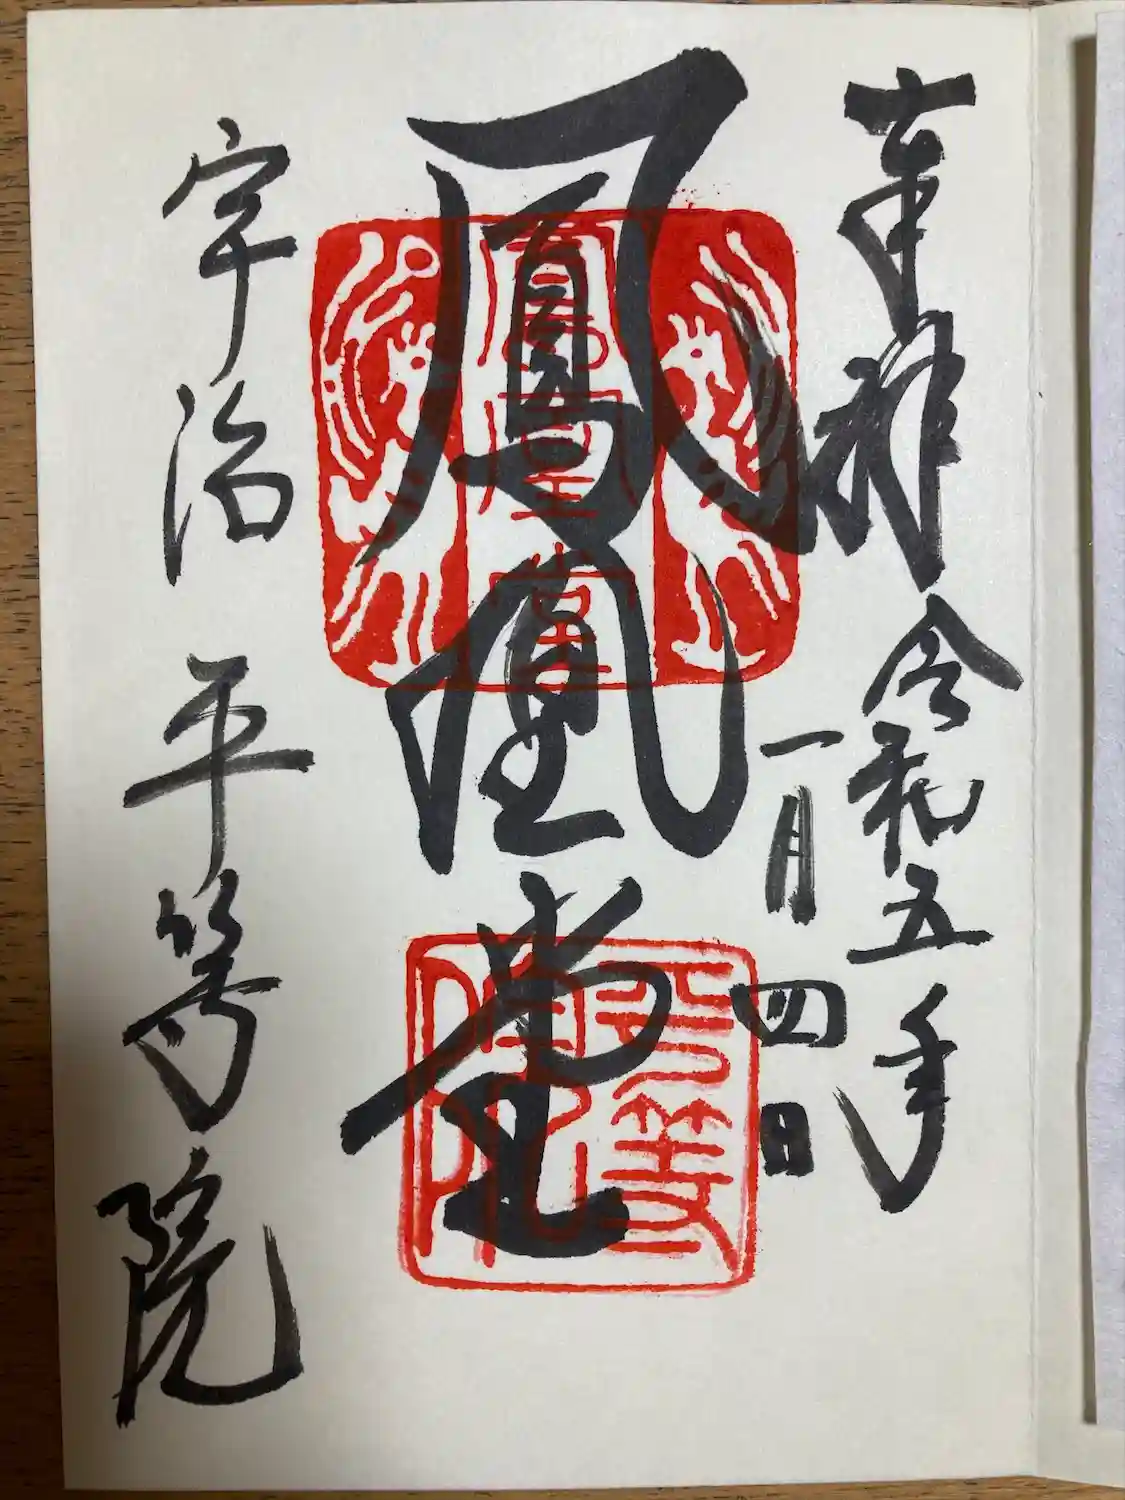 奉拝 令和五年
一月四日
鳳凰堂
鳳凰堂
平等院
宇治 平等院